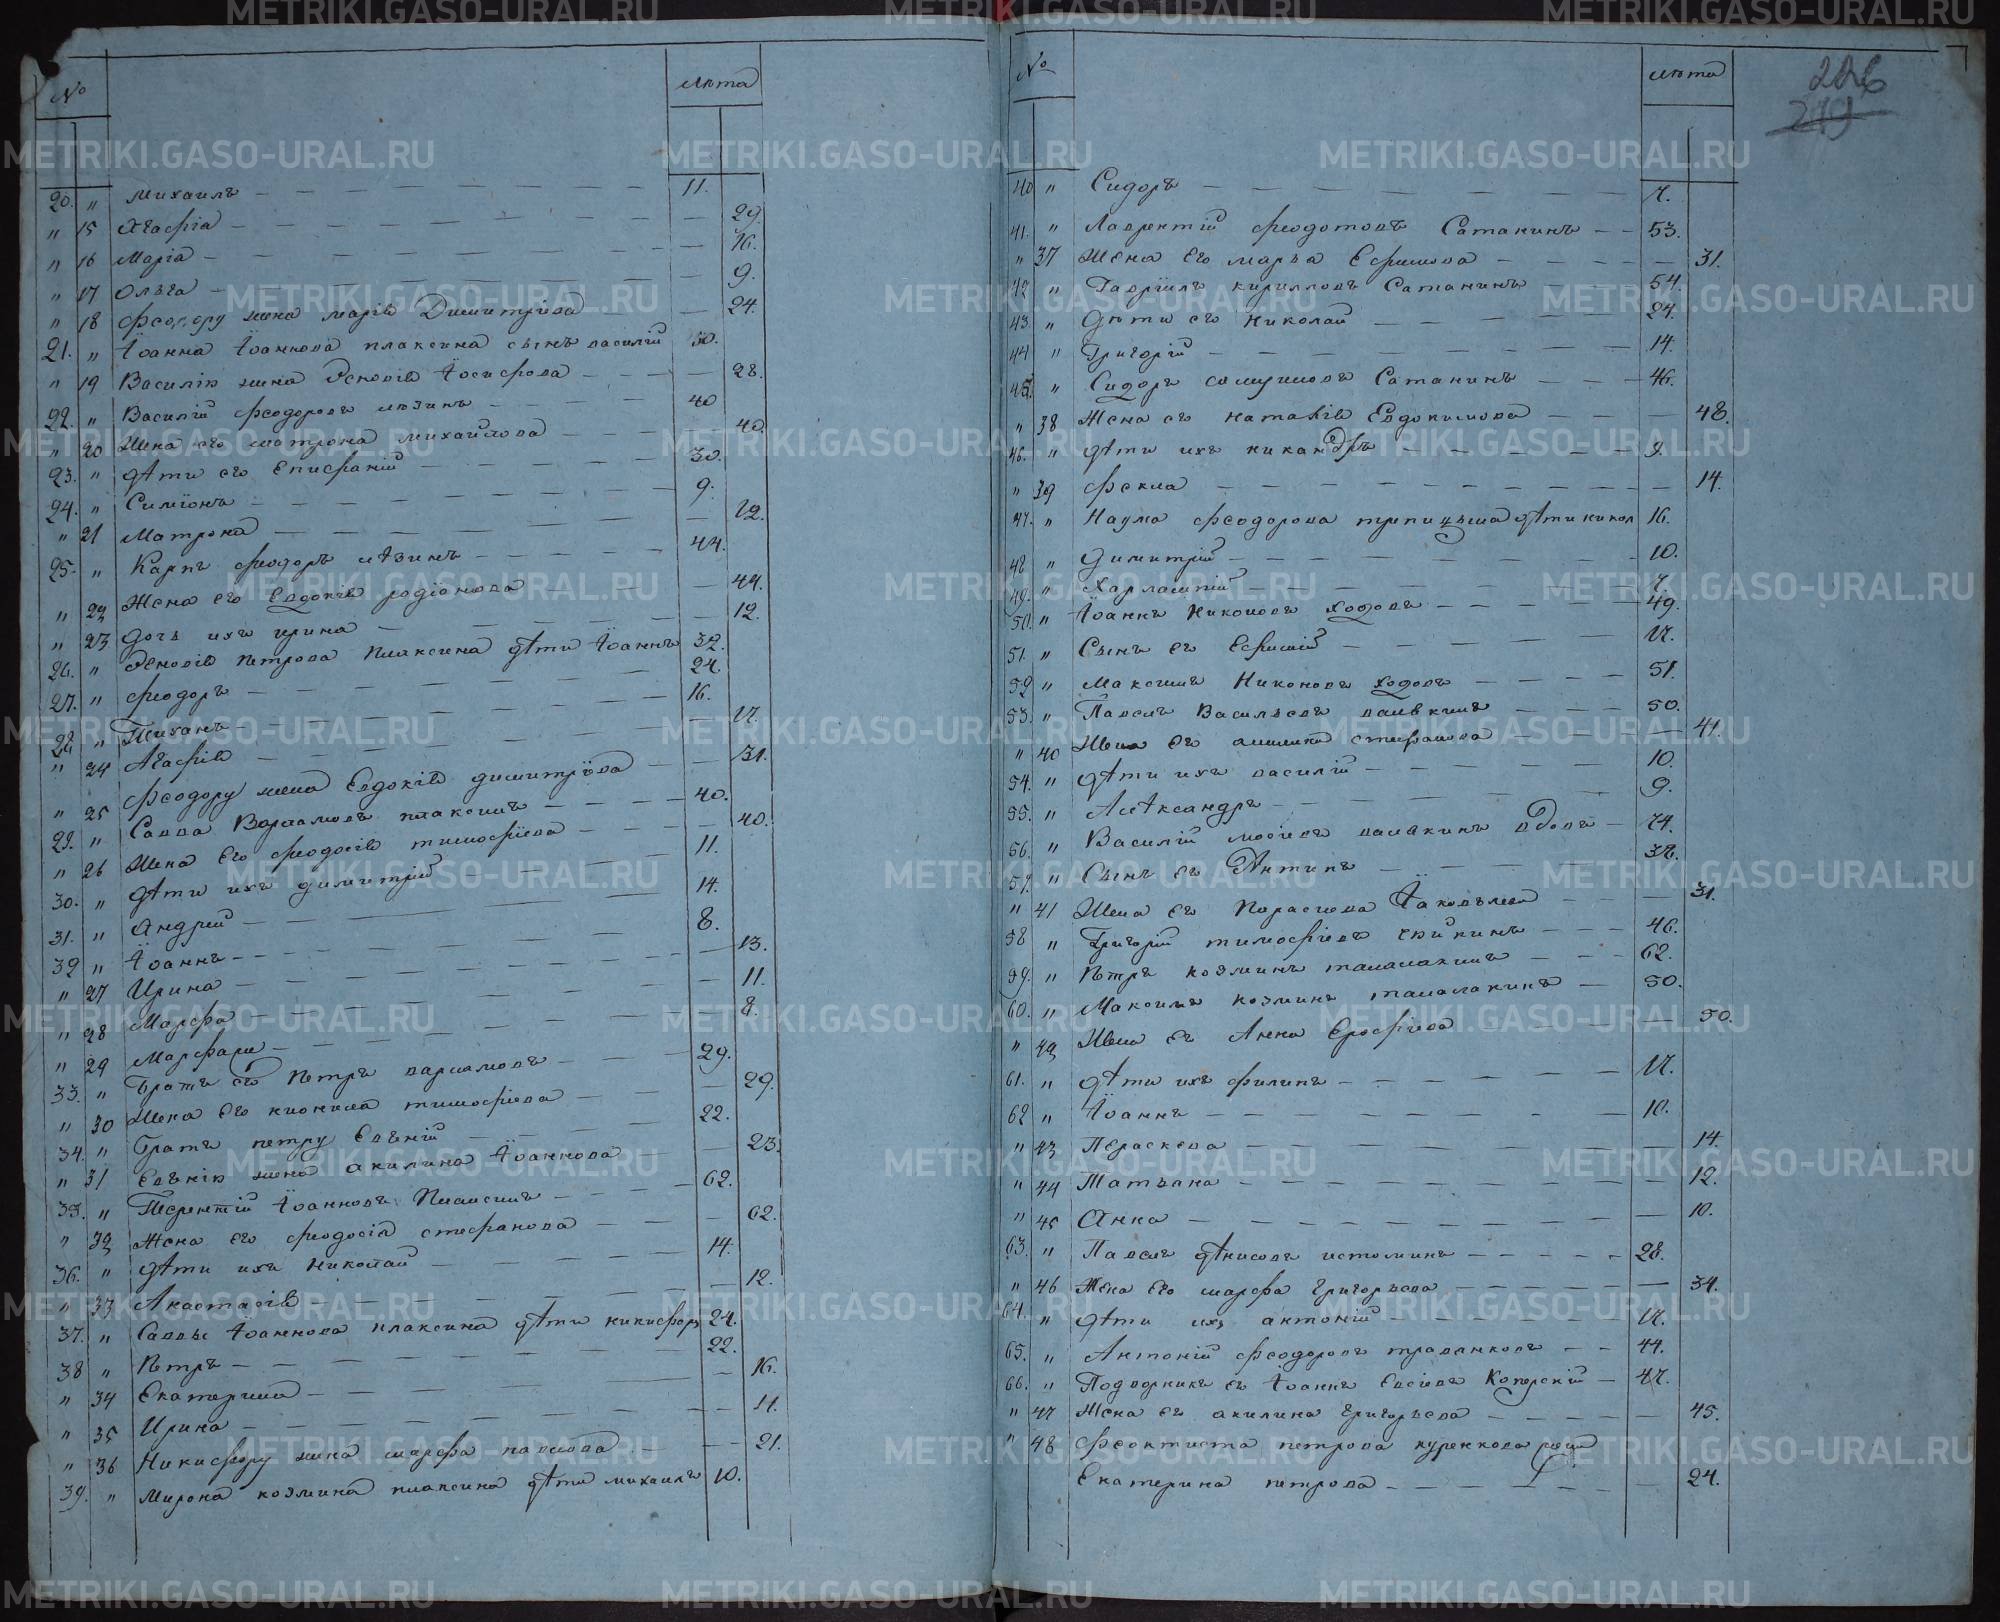 № лѣта
20. " Михаилъ — 11.
" 15 Агафіа — 29.
" 16 Маріа — 16.
" 17 Ольга — 9.
" 18 Феодору жена марія Димитріева — 24.
21. " Іоанна Іоаннова плаксина сынъ василій 30.
" 19 Василію жена Іосифова — 28.
22. " Василій феодоровъ лѣзинъ — 40
" 20 Жена его матрона михаилова — 40.
23. " дѣти его Епифаній — 30.
24. " Симіонъ — 9.
" 21 Матрона — 12.
25. " Карпъ феодоръ лѣзинъ — 44.
" 22 Жена его Евдокія родіонова — 44.
" 23 дочь ихъ ирина — 12.
26. " петрова плаксина дѣти Іоаннъ 32.
27. " феодоръ — 24.
28 " Тиханъ — 16.
" 24 Агафія — 17.
" 25 феодору жена Евдокія димитріева — 31.
29. " Савва Варламовъ плаксинъ — 40.
" 26 Жена Его феодосія тимофіева — 40.
30. " дѣти ихъ димитрій — 11.
31. " Андрій — 14.
32 " Іоаннъ — 8.
" 27 Ирина — 13.
" 28 Марфа — 11.
" 29 Марфа — 8.
33. " Братъ его Петръ варламовъ — 29.
" 30 Жена Его тимофіева — 29.
34. " Братъ петру Евѣній — 22.
" 31 Евѣнію жена акилина Іоаннова — 23.
35. " Терентій Іоанновъ Плаксинъ — 62.
" 32 Жена его феодосія стефанова — 62.
36. " дѣти ихъ Николай — 14.
" 33 Анастасія — 12.
37. " Саввы Іоаннова плаксина дѣти никифоръ 24.
38 " Петръ — 22.
" 34 Екатерина — 16.
" 35 Ирина — 11.
" 36 Никифору жена марфа павлова — 21.
39. " Мирона козмина плаксина дѣти михаилъ 10.
№ лѣта
206
219
40 " Сидоръ — 7.
41. " Лаврентій феодотовъ Сатанинъ — 53.
" 37 Жена Его марѳа Ефимова — 31.
42 " Гавріилъ кирилловъ Сатанинъ — 54.
43. " дѣти его Николай — 24.
44 " Григорій — 14.
45. " Сидоръ Сатанинъ — 46.
" 38 Жена ег наталія Евдокимова — 48.
46. " дѣти ихъ никандръ — 9.
" 39 Фекла — 14.
47. " Наума феодорова трепицына дѣти никол 16.
48 " димитрій — 10.
49. " Харлампій — 7.
50. " Іоаннъ Никоновъ ходовъ — 49.
51. " Сынъ ег Ефимій — 17.
52 " Максимъ Никоновъ ходовъ — 51.
53. " Павелъ Васильевъ валѣкинъ — 50.
" 40 Жена Ег стефанова — 41.
54. " дѣти ихъ василій — 10.
55. " Алѣксандръ — 9.
56. " Василій валѣкинъ вдовъ — 74.
57. " Сынъ ег Антипъ — 37.
" 41 Жена ег Параскева Іаковлева — 31.
58 " Григорій тимофіевъ — 46.
59. " Петръ козминъ таламакинъ — 62.
60. " Максимъ козминъ таламакинъ — 50.
" 42 Жена ег Анна Ерофіева — 50.
61. " дѣти ихъ филипъ — 17.
62 " Іоаннъ — 10.
" 43 Параскева — 14.
" 44 Татьяна — 12.
" 45 Анна — 10.
63. " Павелъ дѣнисовъ истоминъ — 28.
" 46 Жена Его марфа Григорьева — 34.
64. " дѣти ихъ антоній — 17.
65. " Антоній феодоровъ траванковъ — 44.
66. " Подворникъ ег Іоаннъ Евсіевъ — 47.
" 47 Жена ег акилина григорьева — 45.
" 48 Феоктиста петрова куренкова
Екатерина петрова — 24.